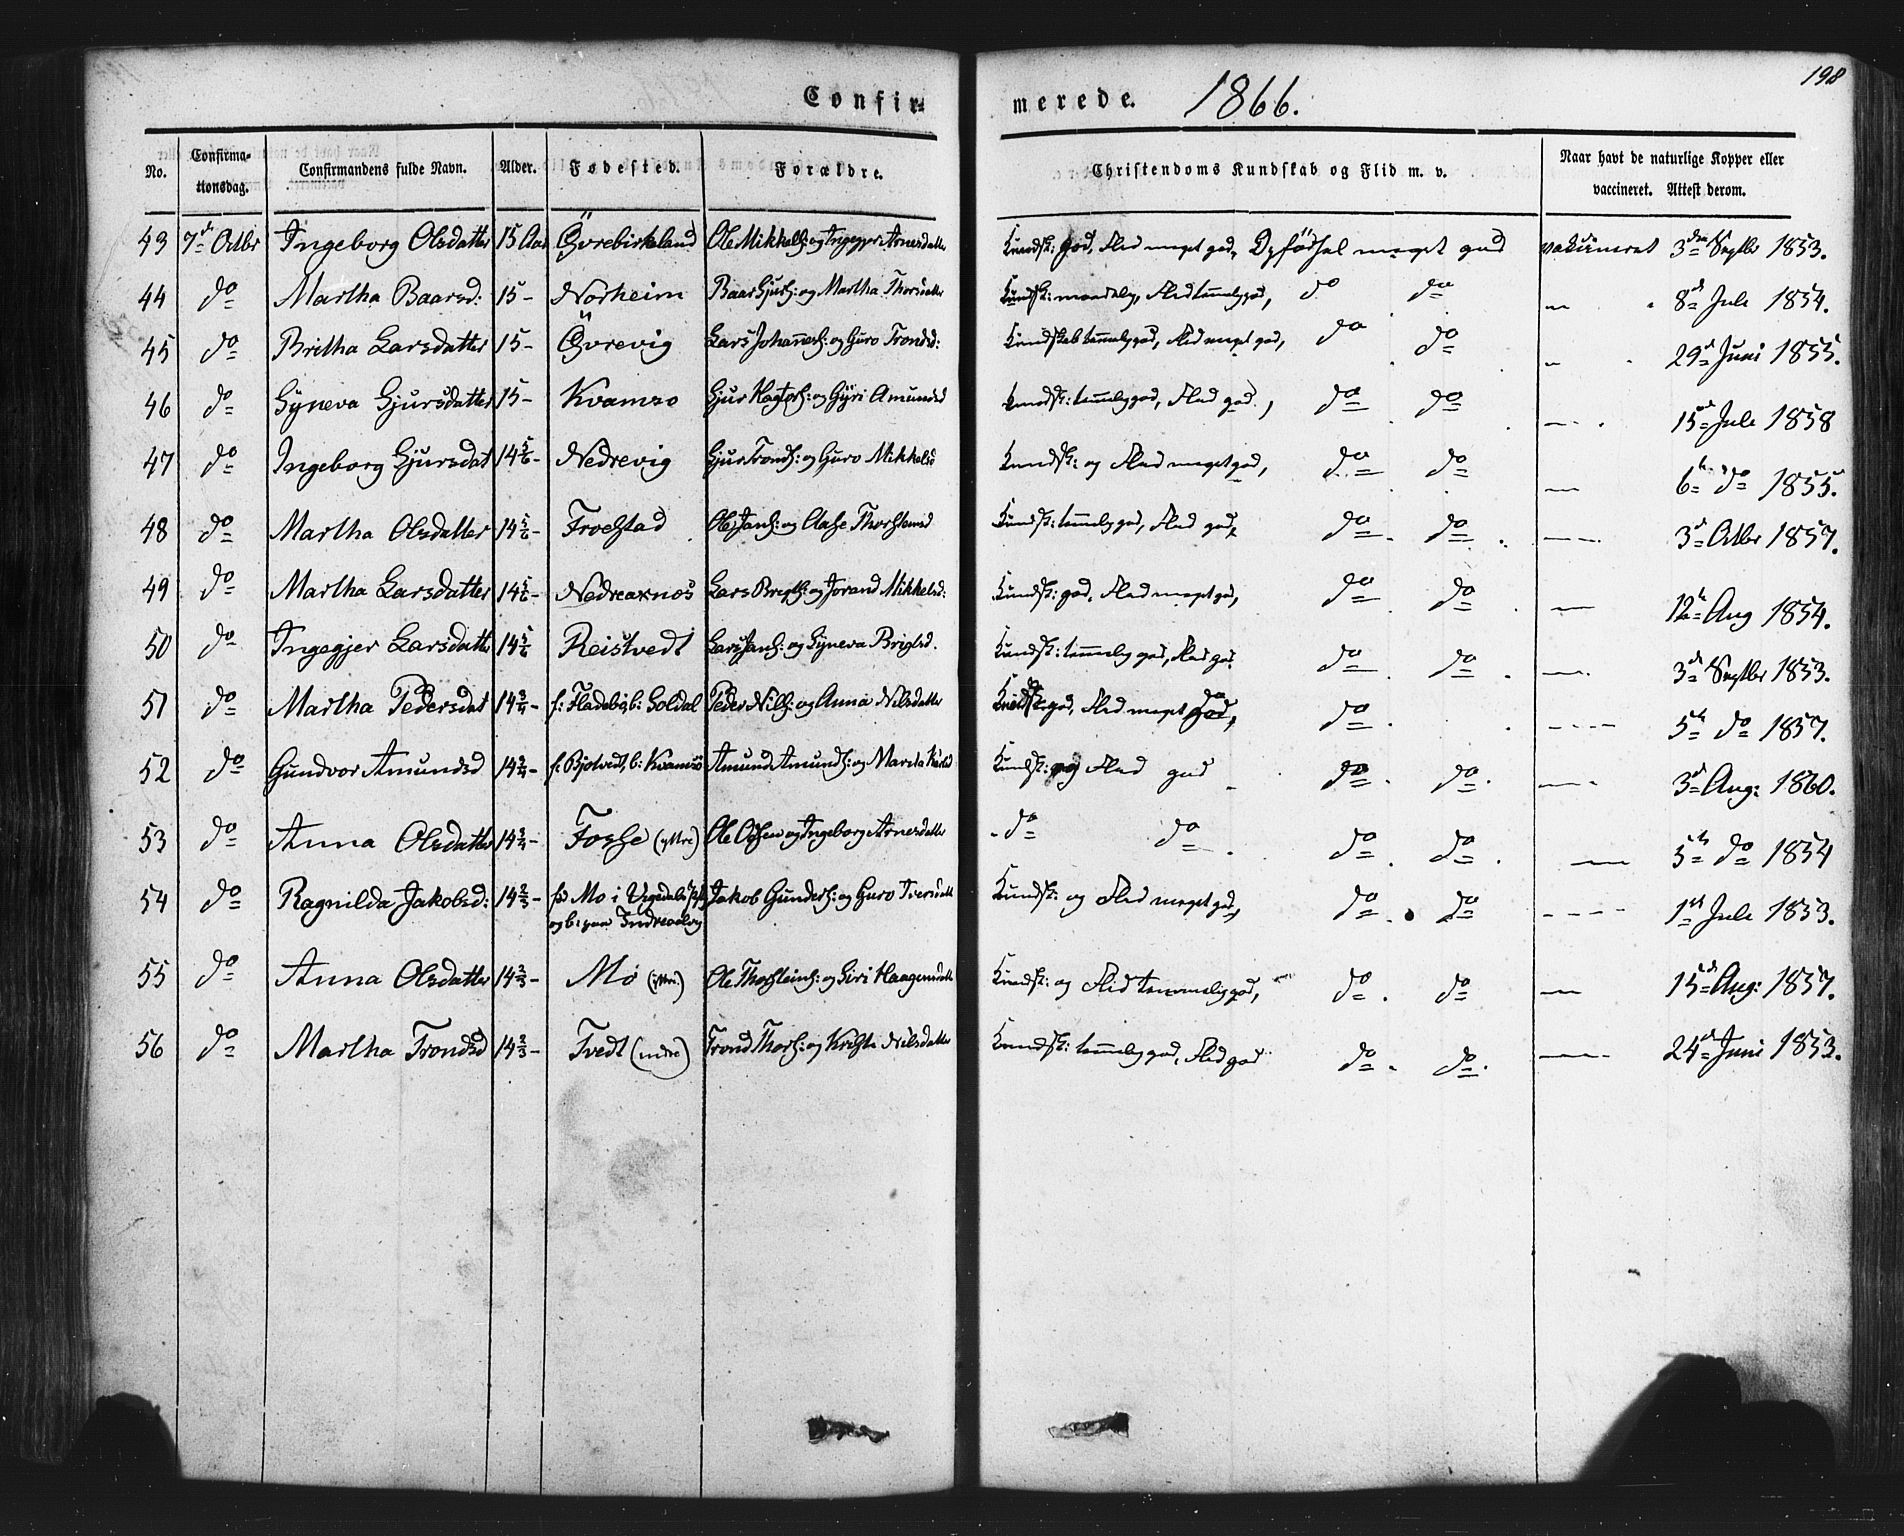 198
Confir- merede. 1866.
No. Confirma-tionsdag. Confirmandens fulde Navn. Alder. Fødested. Forældre. Christendoms Kundskab og Flid m. v. Naar havt de naturlige Kopper eller vaccineret. Attest derom.
43 7d Octbr Ingeborg Olsdatter 15 Aar Övrebirkeland Ole Mikkels: og Ingegjer Arnesdatter Kundsk: god, Flid meget god, Opförsel meget god vakcineret 3die Septbr 1853.
44 do Martha Baarsd: 15 - Norheim Baar Gjurs: og Martha Thorsdatter Kundsk: maadelig, Flid temmelig god, do do — 8d Juli 1854.
45 do Britha Larsdatter 15 - Övrevig Lars Johannes: og Guro Trondsd: Kundskab temmelig god, Flid meget god, do do — 29d Juni 1855.
46 do Syneva Gjursdatter 15 - Kvamso Gjur Hagtors: og Gÿri Amundsd Kundsk: temmelig god, Flid god, do do — 15de Juli 1858
47 do Ingeborg Gjursdat 14 5/6 - Nedrevig Gjur Tronds: og Guro Mikkelsd Kundsk: og Flid meget god, do do — 6te do 1855.
48 do Martha Olsdatter 14 5/6 - Froestad Ole Jans: og Aase Thorstensd Kundsk: temmelig god, Flid god, do do — 3d Octbr 1857.
49 do Martha Larsdatter 14 5/6 - Nedreaxnes Lars Brigts: og Jorand Mikkelsd: Kundsk: god, Flid meget god, do do — 12te Aug 1854.
50 do Ingegjer Larsdatter 14 5/6 Reistvedt Lars Jans: og Syneva Brigtsd. Kundsk: temmelig god, Flid god. do do — 3d Septbr 1853.
51 do Martha Pedersdat 14 3/4 - f: Fladebö, b: Soldal Peder Nils: og Anna Nilsdatter Kundsk: god, Flid meget god, do — 5te do 1857.
52 do Gundvor Amundsd 14 3/4 - f: Bjotvedt, b: Kvamsö Amund Amunds: og Marita Kundsk: og Flid god do do — 3d Aug: 1860.
53 do Anna Olsdatter 14 3/4 - Fosse (ÿttre) Ole og Ingeborg Arnesdatter do do do do — 5te do 1854
54 do Ragnilda Jakobsd: 14 2/3 - fd Mo i og b: paa Jakob Gunders: og Guro Iversdatt Kundsk: og Flid meget god, do do — 1ste Juli 1853.
55 do Anna Olsdatter 14 2/3 - Mo (ÿttre.) Ole Thorsteins: og Siri Haagensdatt Kundsk: og Flid temmelig god, do do — 15d Aug: 1857.
56 do Martha Trondsd 14 2/3 - Tvedt (indre) Trond Thors: og Kristi Nilsdatter Kundsk: temmelig god, Flid god do do — 24d Juni 1853.